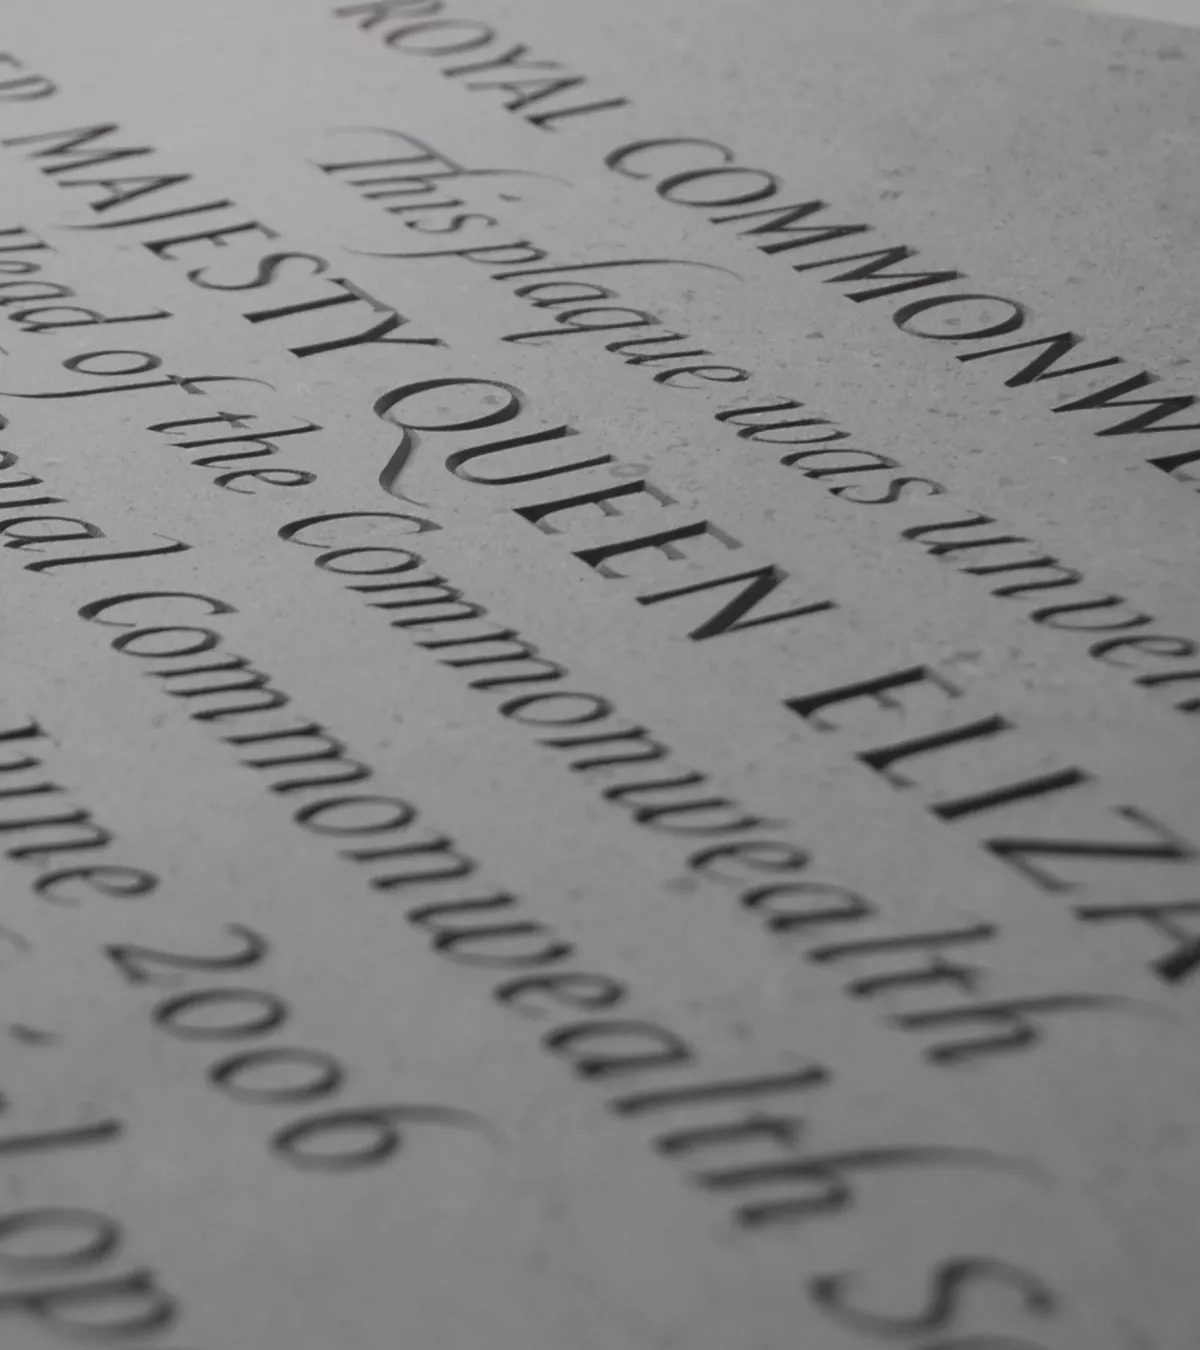 ROYAL COMMONW
This plaque was unveil
MAJESTY QUEEN ELIZA
Head of the Commonwealth
nual Commonwealth S
June 2006